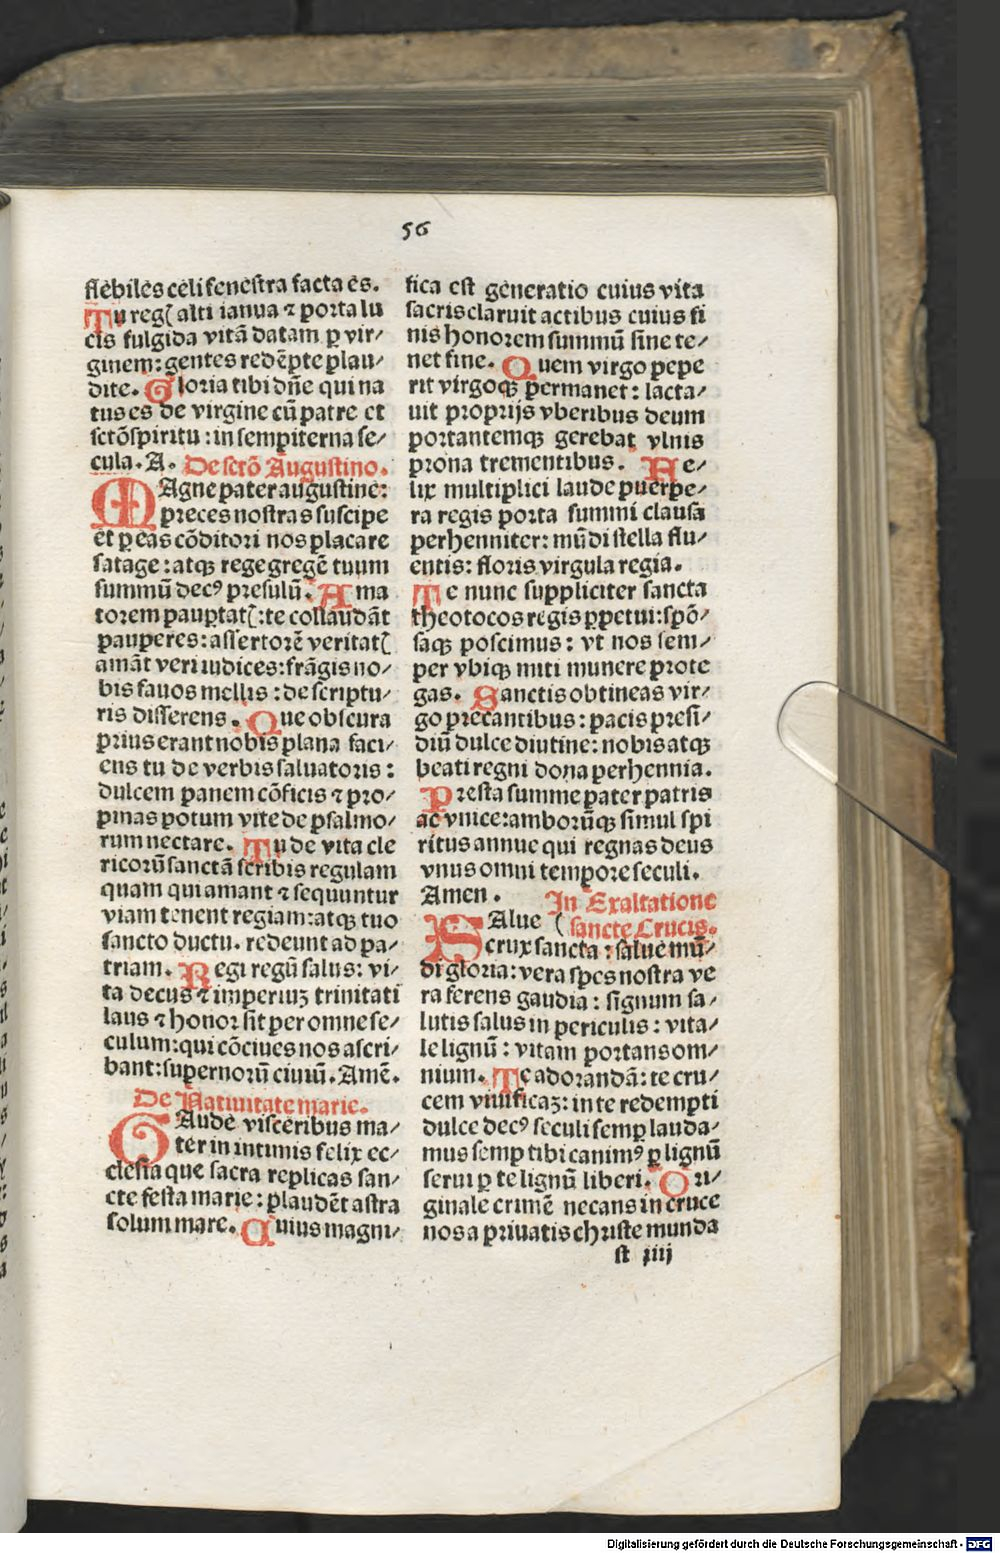 56
flēbiles celi fenestra facta es.
Tu regꝭ alti ianua ⁊ porta lu
cis fulgida vitā datam ꝑ vir⸗
ginem: gentes redēpte plau⸗
dite. Gloria tibi dn̄e qui na
tus es de virgine cū patre et
sctō spiritu: in sempiterna se⸗
cula. A. De sctō Augustino.
MAgne pater augustine:
preces nostras suscipe
et ꝑ eas cōditori nos placare
satage: atqꝫ rege gregē tuum
summū decꝰ presulū. Ama
torem pauꝑtatꝭ: te collaudāt
pauperes: assertorē veritatꝭ
amāt veri iudices: frāgis no⸗
bis fauos mellis: de scriptu⸗
ris disserens. Que obscura
prius erant nobis plana faci⸗
ens tu de verbis saluatoris:
dulcem panem cōficis ⁊ pro⸗
pinas potum vite de psalmo⸗
rum nectare. Tu de vita cle
ricorū sanctā scribis regulam
quam qui amant ⁊ sequuntur
viam tenent regiam: atqꝫ tuo
sancto ductu. redeunt ad pa⸗
triam. Regi regū salus: vi⸗
ta decus ⁊ imperiuꝫ trinitati
laus ⁊ honor sit per omne se⸗
culum: qui cōciues nos ascri⸗
bant: supernorū ciuiū. Amē.
De Natiuitate marie.
GAude visceribus ma⸗
ter in intimis felix ec⸗
clesia que sacra replicas san⸗
cte festa marie: plaudēt astra
solum mare. Cuius magni⸗
fica est generatio cuius vita
sacris claruit actibus cuius fi
nis honorem summū sine te⸗
net fine. Quem virgo pepe
rit virgoqꝫ permanet: lacta⸗
uit proprijs vberibus deum
portantemqꝫ gerebat vlnis
prona trementibus. Fe⸗
lix multiplici laude puerpe⸗
ra regis porta summi clausa
perhenniter: mūdi stella flu⸗
entis: floris virgula regia.
Te nunc suppliciter sancta
theotocos regis ꝑpetui: spō⸗
saqꝫ poscimus: vt nos sem⸗
per vbiqꝫ miti munere prote
gas. Sanctis obtineas vir⸗
go precantibus: pacis presi⸗
diū dulce diutine: nobis atqꝫ
beati regni dona perhennia.
Presta summe pater patris
ac vnice: amborūqꝫ simul spi
ritus annue qui regnas deus
vnus omni tempore seculi.
Amen. In Exaltatione
SAlue ( sancte Crucis.
crux sancta: salue mū⸗
di gloria: vera spes nostra ve
ra ferens gaudia: signum sa⸗
lutis salus in periculis: vita⸗
le lignū: vitam portans om⸗
nium. Te adorandā: te cru⸗
cem viuificaꝫ: in te redempti
dulce decꝰ seculi semꝑ lauda⸗
mus semꝑ tibi canimꝰ ꝑ lignū
serui ꝑ te lignū liberi. Ori⸗
ginale crimē necans in cruce
nos a priuatis christe munda
st iiij
Digitalisierung gefördert durch die Deutsche Forschungsgemeinschaft - DFG